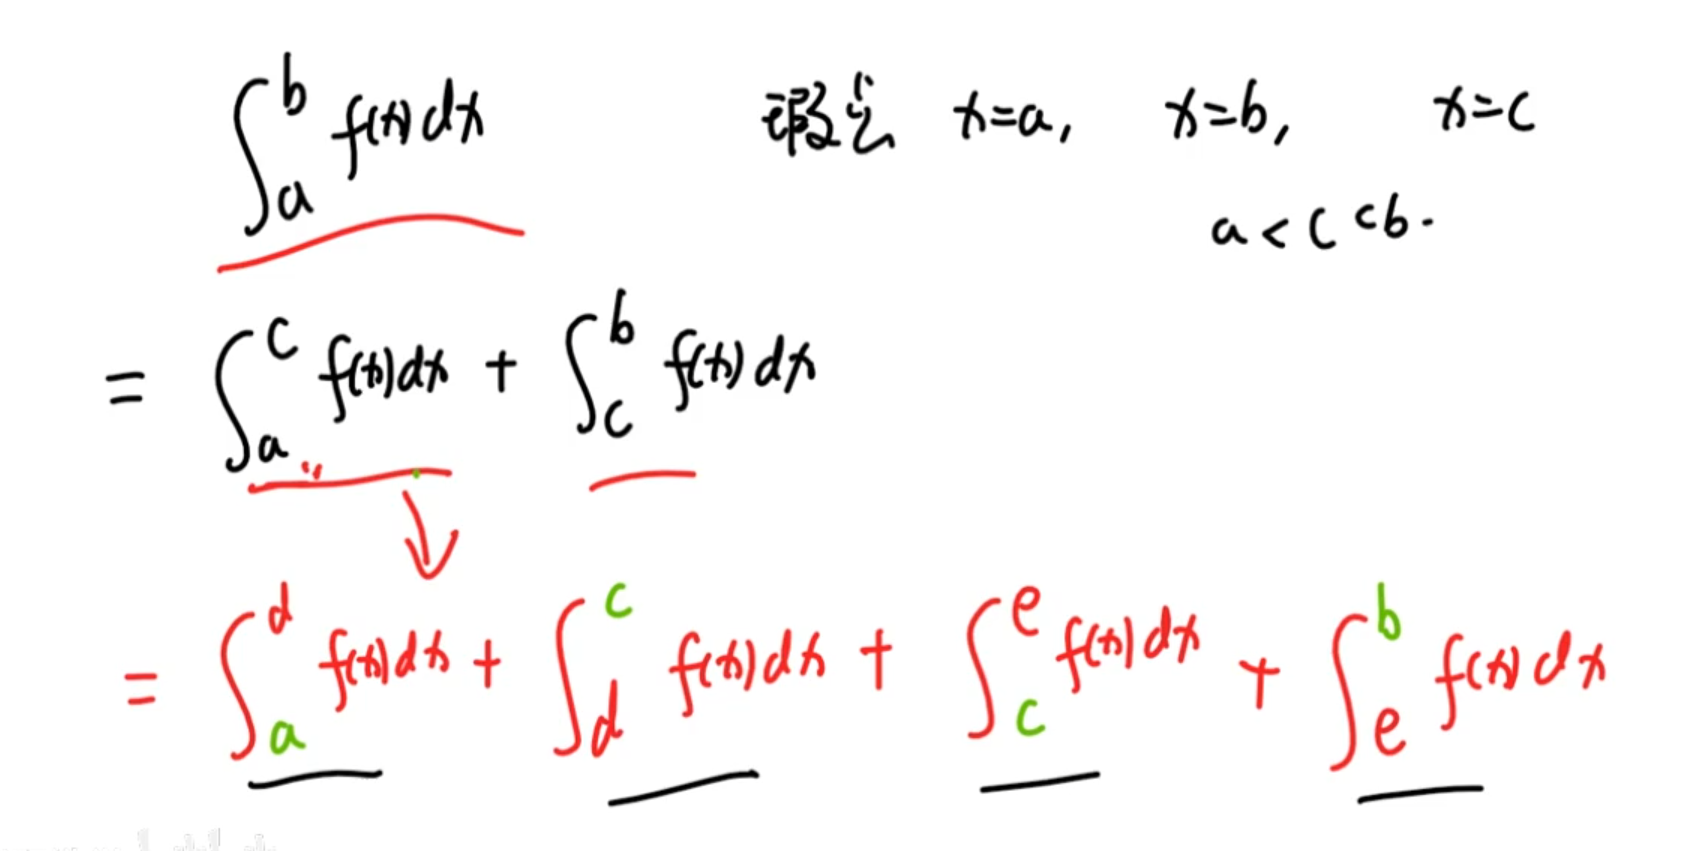 ∫_a^b f(x)dx 瑕点 x=a, x=b, x=c
a<c<b.
= ∫_a^c f(x)dx + ∫_c^b f(x)dx
= ∫_a^d f(x)dx + ∫_d^c f(x)dx + ∫_c^e f(x)dx + ∫_e^b f(x)dx